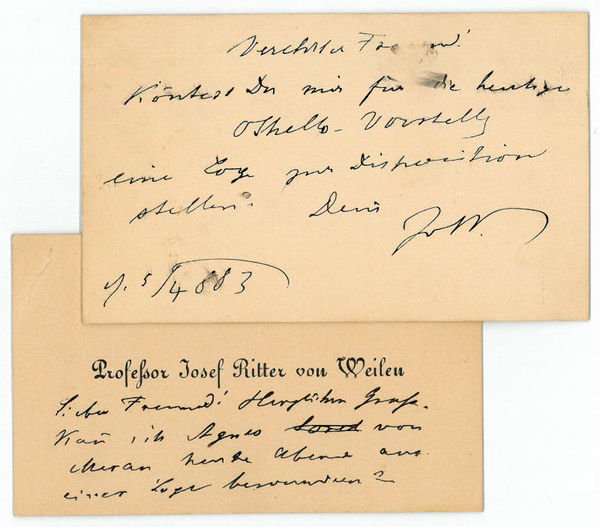 Verehrter Freund!
Köntest Du mir für die heutige
Othello-Vorstellg
eine Loge zur Disposition
stellen. Dein
JvW.
5/4 883
Profeſsor Josef Ritter von Weilen
Lieber Freund! Herzlichen Gruß.
Kañ ich Agnes von
Meran heute Abend aus
einer Loge bewundern?